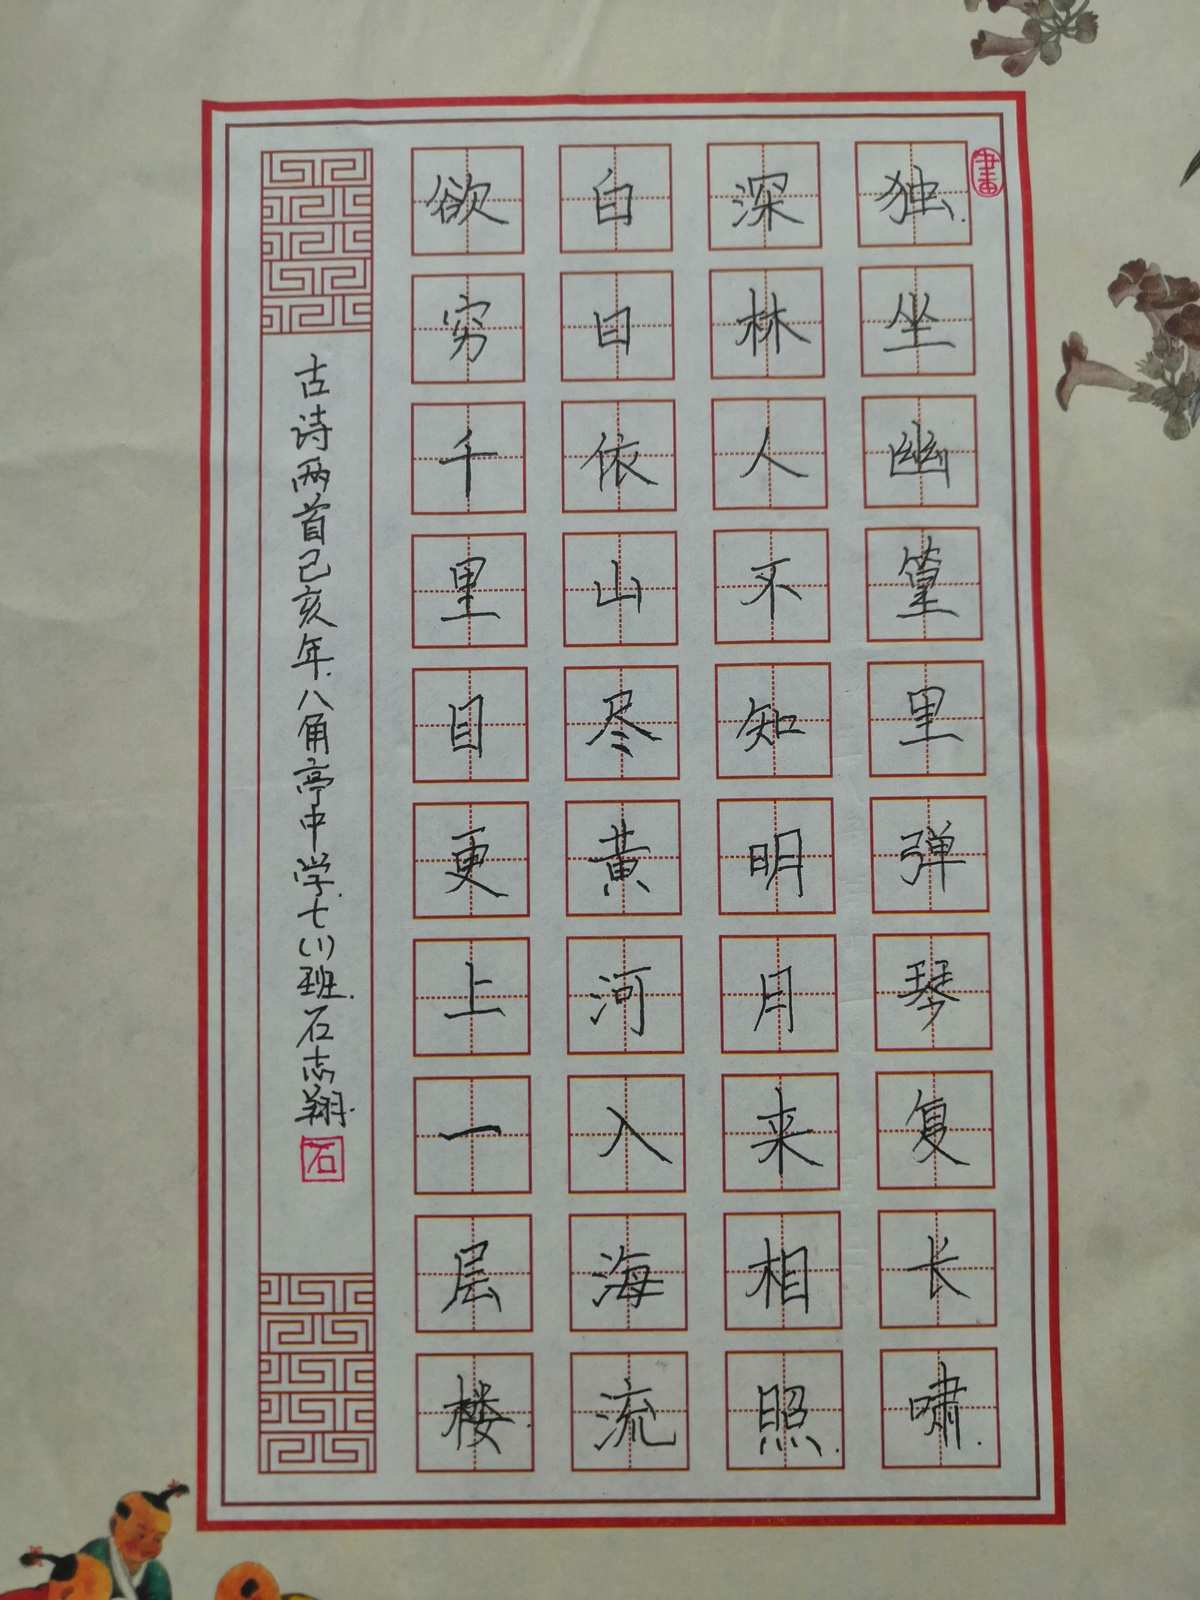 独坐幽篁里弹琴复长啸
深林人不知明月来相照
白日依山尽黄河入海流
欲穷千里目更上一层楼
古诗两首己亥年八角亭中学七(1)班石志翔
石